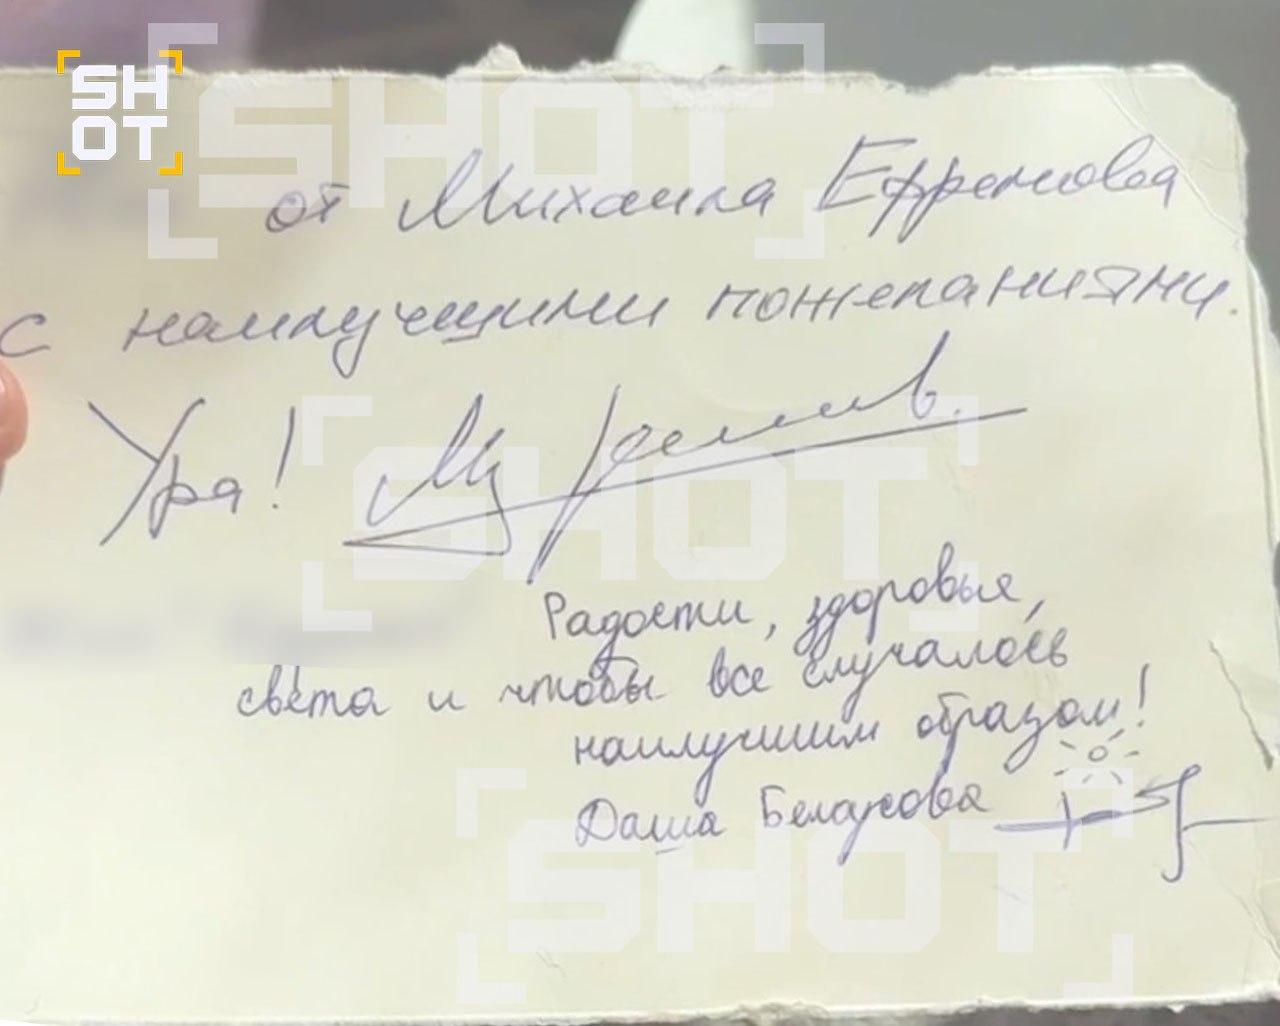 SH
OT
SHOT
от Михаила Ефремова
с наилучшими пожеланиями.
Ура! М Ефремов.
SHOT
Радости, здоровья,
света и чтобы все случалось
наилучшим образом!
Даша Белоусова
SHOT